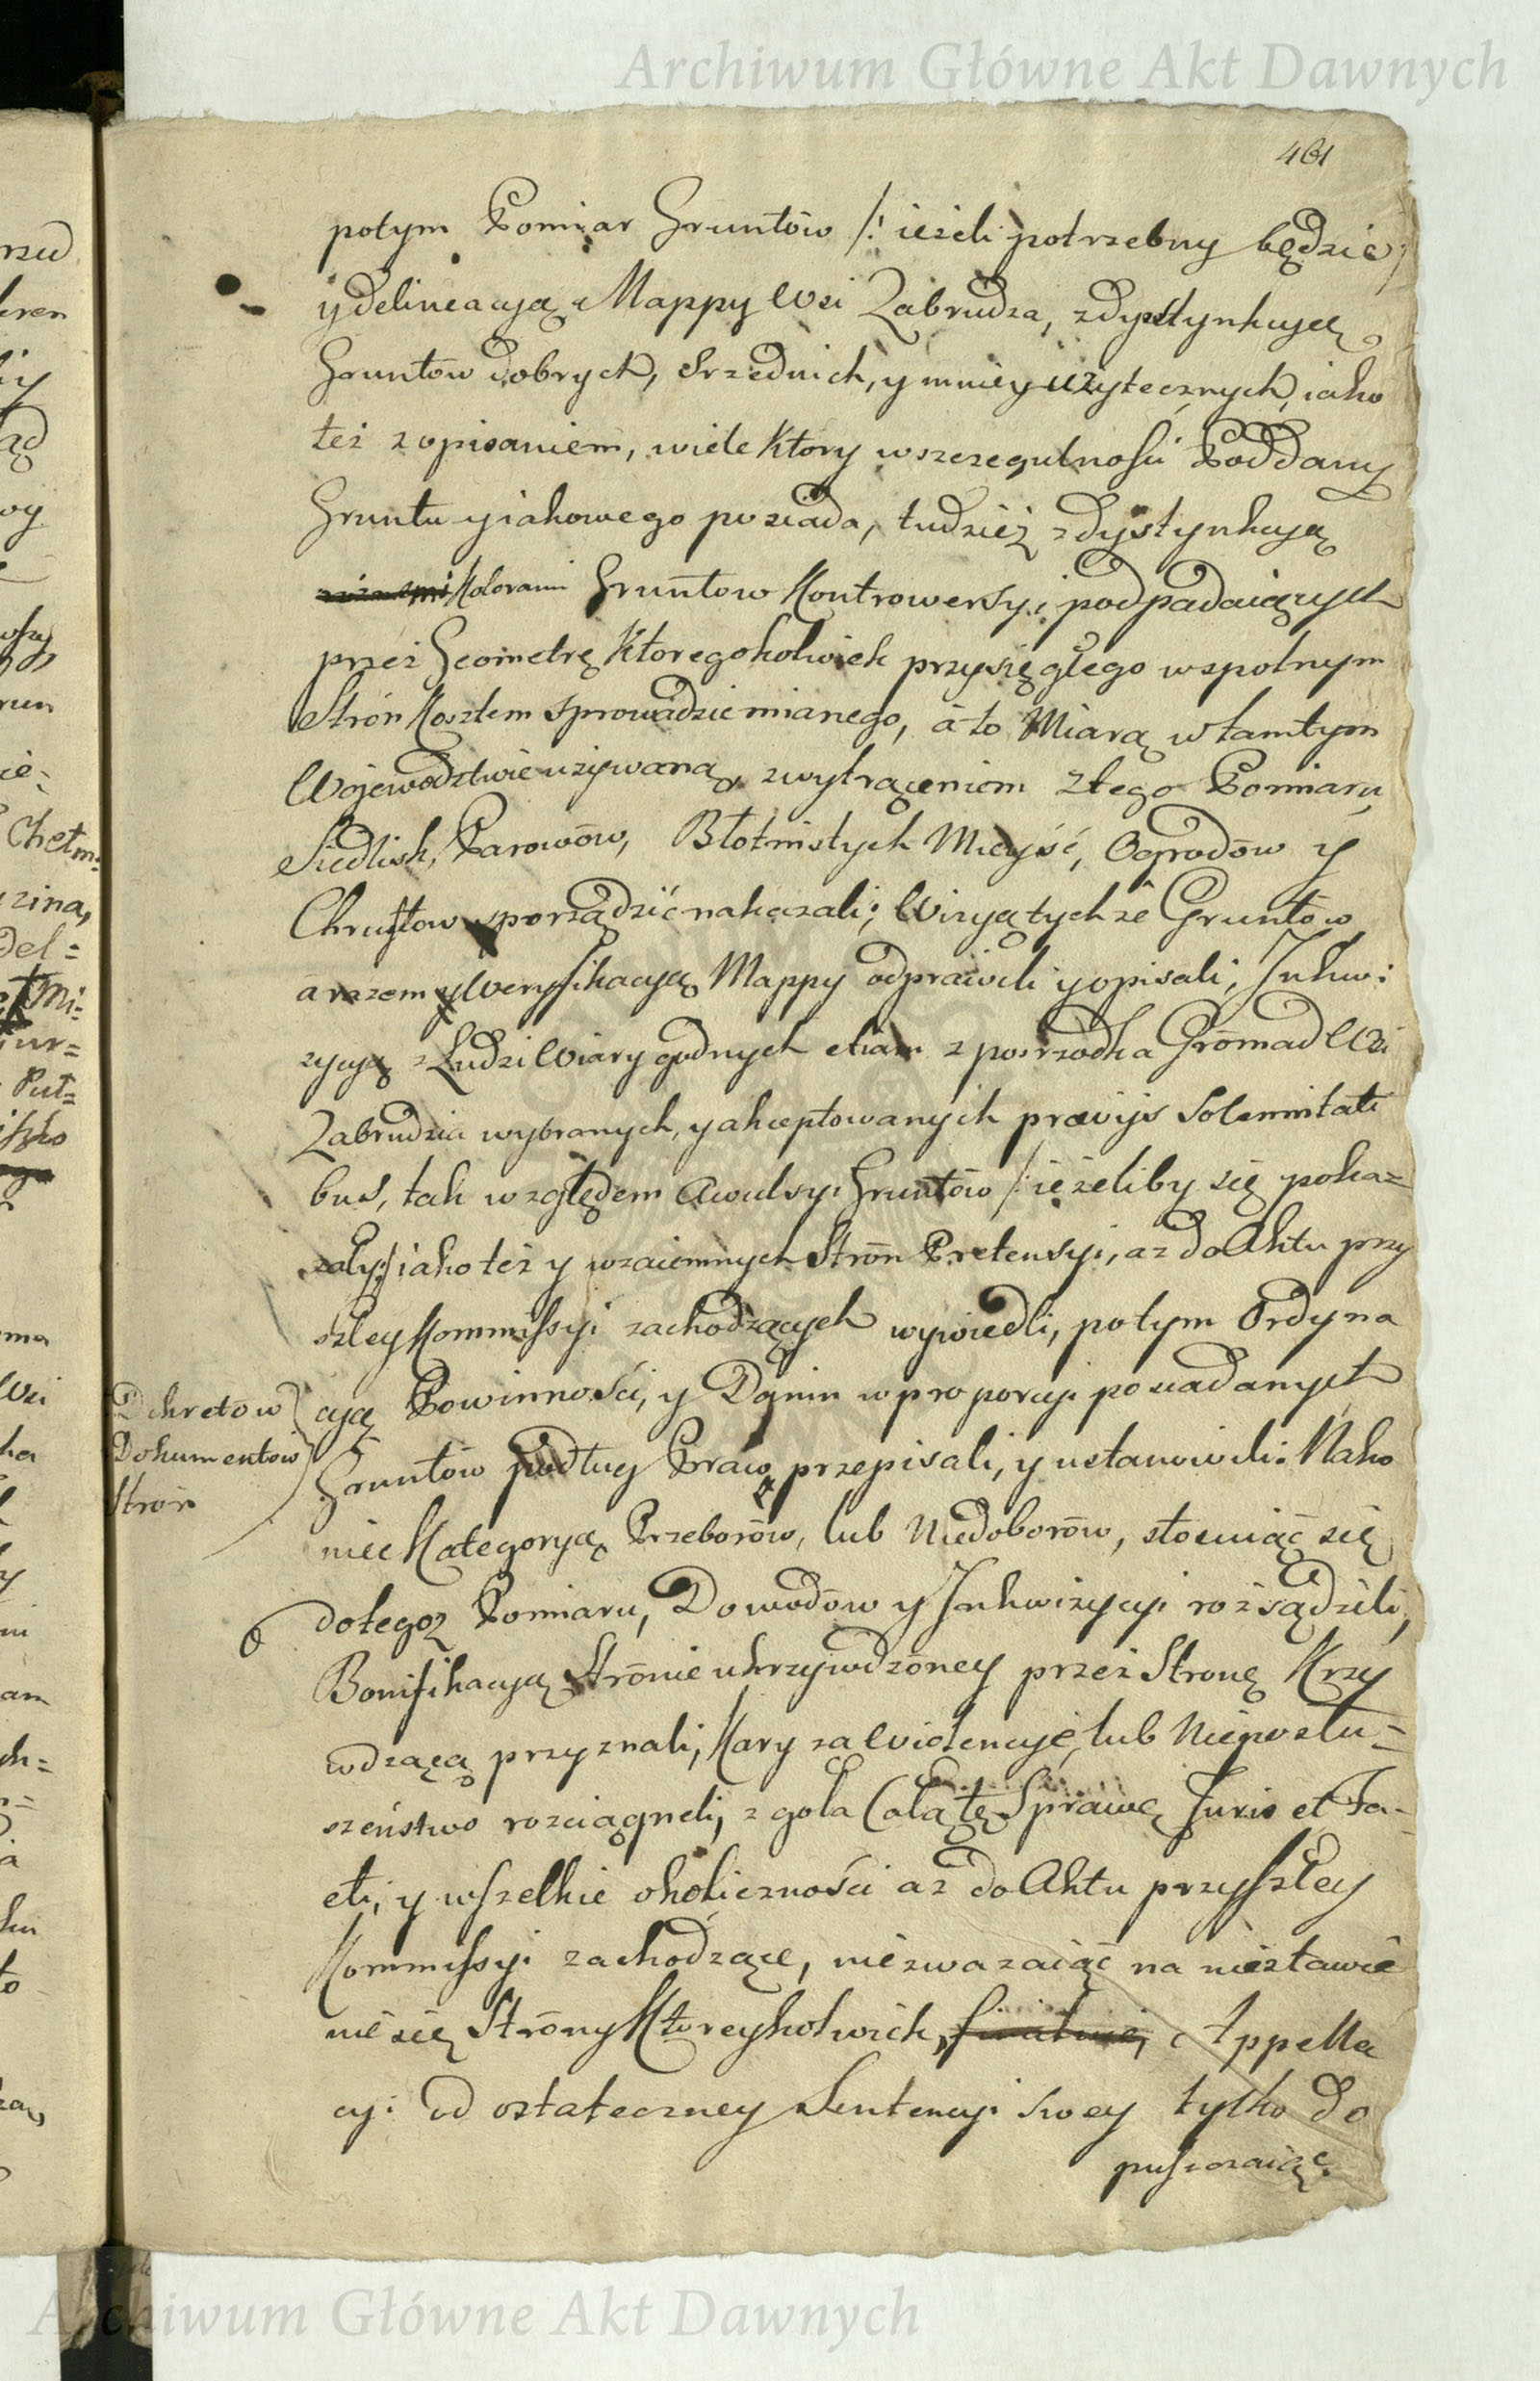 Archiwum Główne Akt Dawnych
461
potym Pomiar Gruntów /: ieżeli potrzebny będzie /
y delineacyą Mappy Wsi Zabrudza, z dystynkcyą
Gruntów dobrych, srzednich, y mniey użytecznych, iako
też z opisaniem, wiele Ktory w szczegulności Poddany
Gruntu y iakowego posiada, tudzież z dystynkcyą
Kolorami Gruntow Kontrowersyi podpadaiących
przez Geometrę Ktoregokolwiek przysięgłego wspolnym
Strón Kosztem sprowadzić mianego, á to Miarą w tamtym
Wojewodztwie używaną, z wytrąceniem złego Pomiaru,
Siedlisk, Parowów, Błotnistych Mieysć, Ogrodów y
Chrustow sporządzić nakazali; Wizyą tychże Gruntów
a razem y Weryfikacyą Mappy odprawili y opisali; Inkwi:
zycyą z Ludzi Wiary godnych etiam z posrzodka Gromad Wsi
Zabrudzia wybranych, y akceptowanych praevijs Solemnitati
bus, tak względem Awulsyi Gruntów /: ieżeliby się poka=
zały :/ iako też y wzaiemnych Strón Pretensyi, aż do Aktu przy
szłey Kommissyi zachodzących wywiedli, potym Ordyna
cyą Powinności, y Danin w proporcyi posiadanych
Dekretow
Dokumentów
Strón
Gruntów podług Praw przepisali, y ustanowili: Nako
niec Kategoryą Przeborów, lub Niedoborów, stosuiąc się
do tegoż Pomiaru, Dowodów y Inkwizycyi rozsądzili,
Bonifikacyą Strónie ukrzywdzóney przez Stronę Krzy
wdzącą przyznali, Kary za Wiolencyie, lub Nieposłu=
szeństwo rozciągneli, z gola Całą tę Sprawę Juris et Fa-
cti, y wszelkie okoliczności aż do Aktu przyszłey
Kommissyi zachodzące, niezważaiąc na niestawie
nie się Stróny Ktoreykolwiek, finalnie, Appella
cyi od ostateczney Sentencyi swey tylko do
puszczaiąc.
Archiwum Główne Akt Dawnych